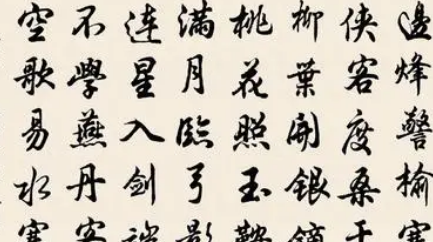 邊烽警榆塞
侠客度桑干
柳葉開銀鏑
桃花照玉鞍
满月臨弓影
连星入劍端
不學燕丹客
空歌易水寒